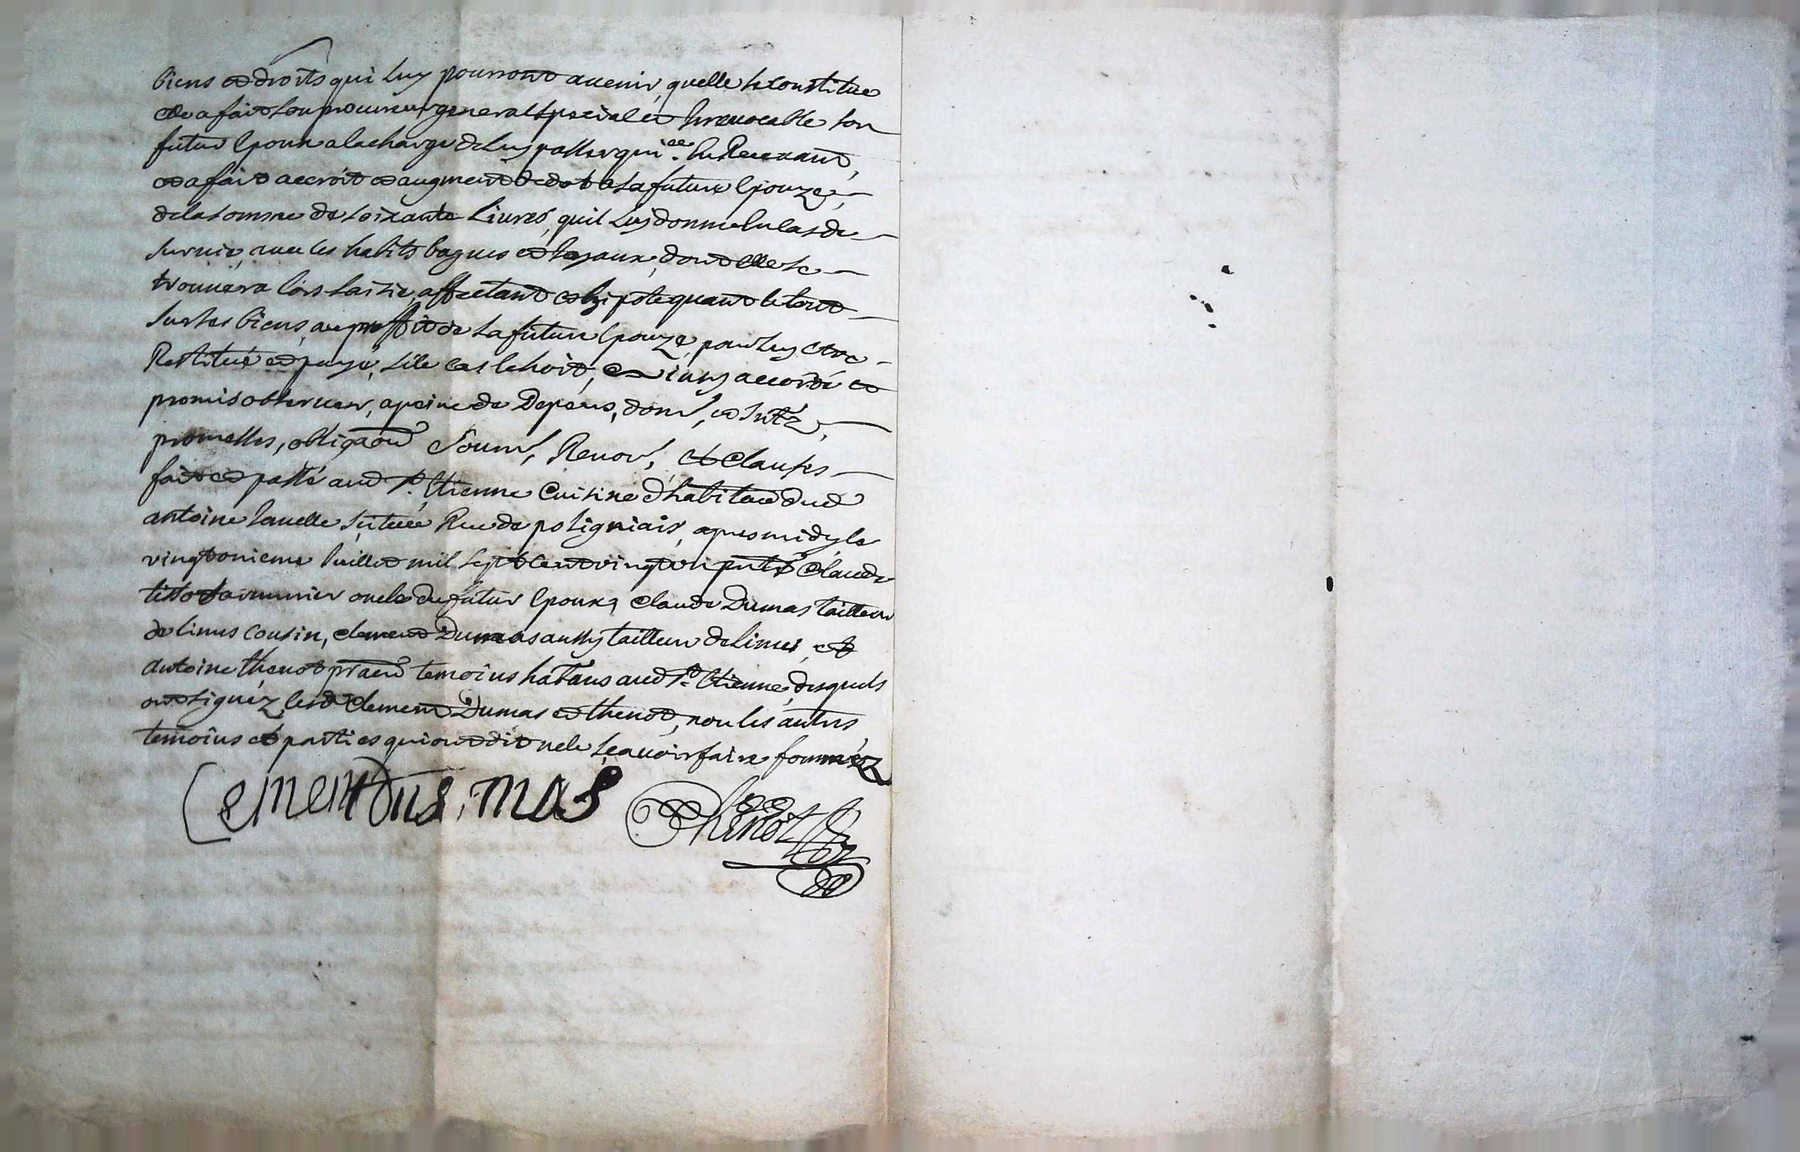 biens et droits qui luy pourront auenir, quelle se constitue
et a fait son procureur general special et Irreuocable son
futur Epoux a la charge de luy passer quice. en Receuant,
et a fait accroit et augment de dot a la future Epouze,
de la somme de soixante Liures, quil luy donne en cas de
suruie, auec les habits bagues et Joyaux, dont elle se
trouuera lors saisie, affectant et hipotequant le tout
sur ses biens, au proffit de la future Epouze, pour luy etre
Restitué et payé, si le cas le hoit, et ainsy accordé et
promis obseruer, a peine de Depens, dom, et Intz,
promesses, obligaon Soum, Renon, et Clauses
fait et passé aud St. Etienne Cuisine d'habitaon dud
antoine lauelle, situeé Rue de polignais, apres midy le
vingt onieme Juillet mil sept cent vingt pnts Claude
tissot armurier oncle du futur Epoux, Claude Dumas tailleur
de limes cousin, clement Dumas aussy tailleur de limes, et
antoine thenot praen temoins habans aud St. Etienne, desquels
ont signéz, lesd. Clement Dumas et thenot, non les autres
temoins et parties qui ont dit ne le scauoir faire sommez
Cement dus, mas Thenot